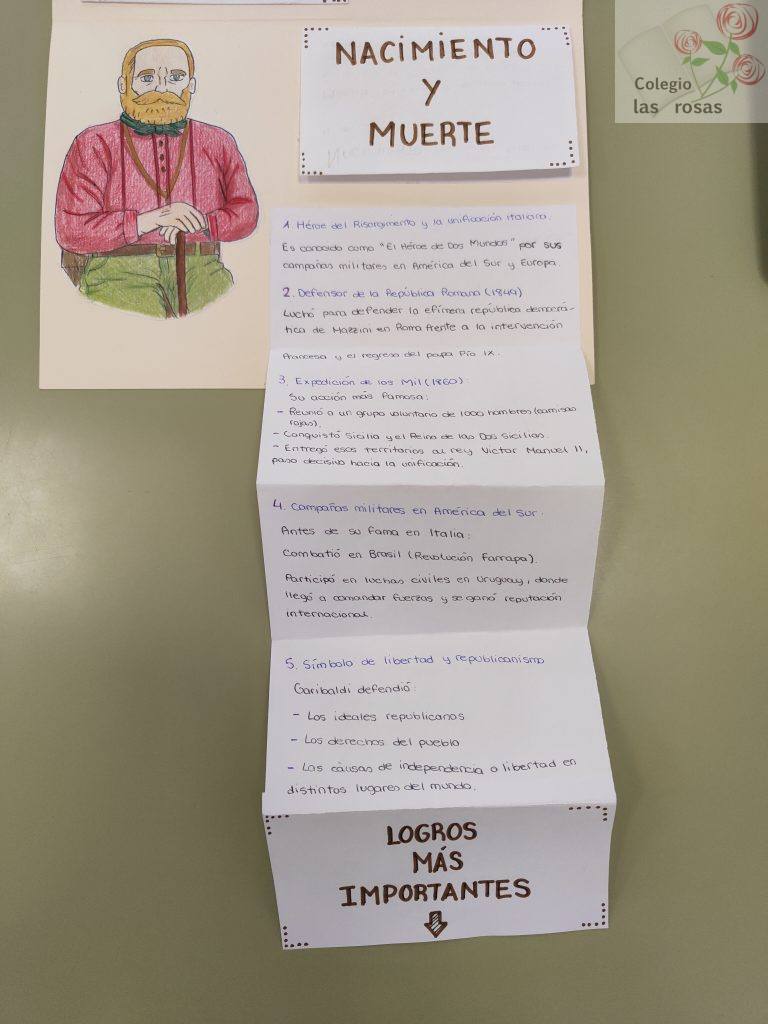 Colegio
las rosas
NACIMIENTO
Y
MUERTE
1. Héroe del Risorgimento y la unificación italiana.
Es conocido como "El Héroe de Dos Mundos" por sus
campañas militares en América del Sur y Europa.
2. Defensor de la República Romana (1849)
Luchó para defender la efímera república democrá-
tica de Mazzini en Roma frente a la intervención
francesa y el regreso del papa Pío IX.
3. Expedición de los Mil (1860):
Su acción más famosa:
- Reunió a un grupo voluntario de 1000 hombres (camisas
rojas).
- Conquistó Sicilia y el Reino de las Dos Sicilias.
- Entregó esos territorios al rey Victor Manuel II,
paso decisivo hacia la unificación.
4. Campañas militares en América del Sur.
Antes de su fama en Italia:
Combatió en Brasil (Revolución Farrapa).
Participó en luchas civiles en Uruguay, donde
llegó a comandar fuerzas y se ganó reputación
internacional.
5. Símbolo de libertad y republicanismo
Garibaldi defendió:
- Los ideales republicanos
- Los derechos del pueblo
- Las causas de independencia o libertad en
distintos lugares del mundo.
LOGROS
MÁS
IMPORTANTES